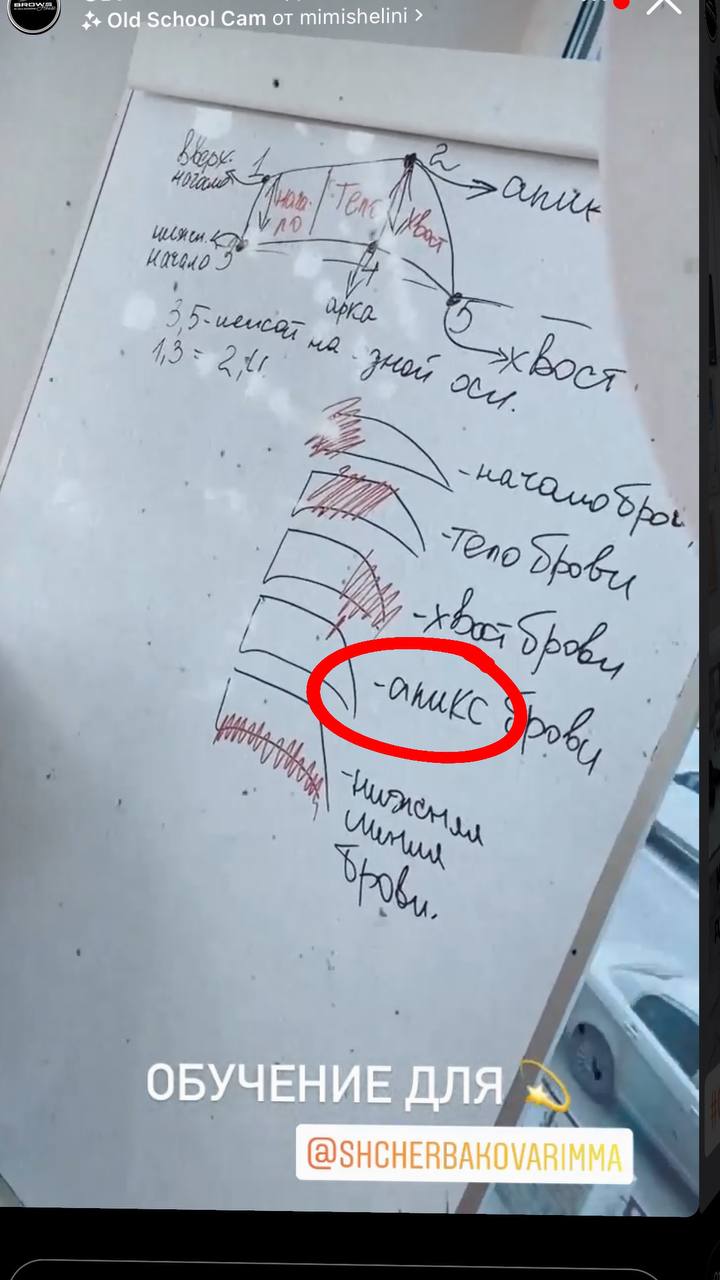 BROWS
Old School Cam от mimishelini >
вверх. 1 2
начало апик
нача
ло
Тело
хвост
нижн.
начало 3
4
арка
5
хвост
3,5-лежат на - зной оси.
1,3 = 2,4
-начало бров
-тело брови
-хвост брови
-апикс брови
-нижняя
линия
брови.
ОБУЧЕНИЕ ДЛЯ
@SHCHERBAKOVARIMMA